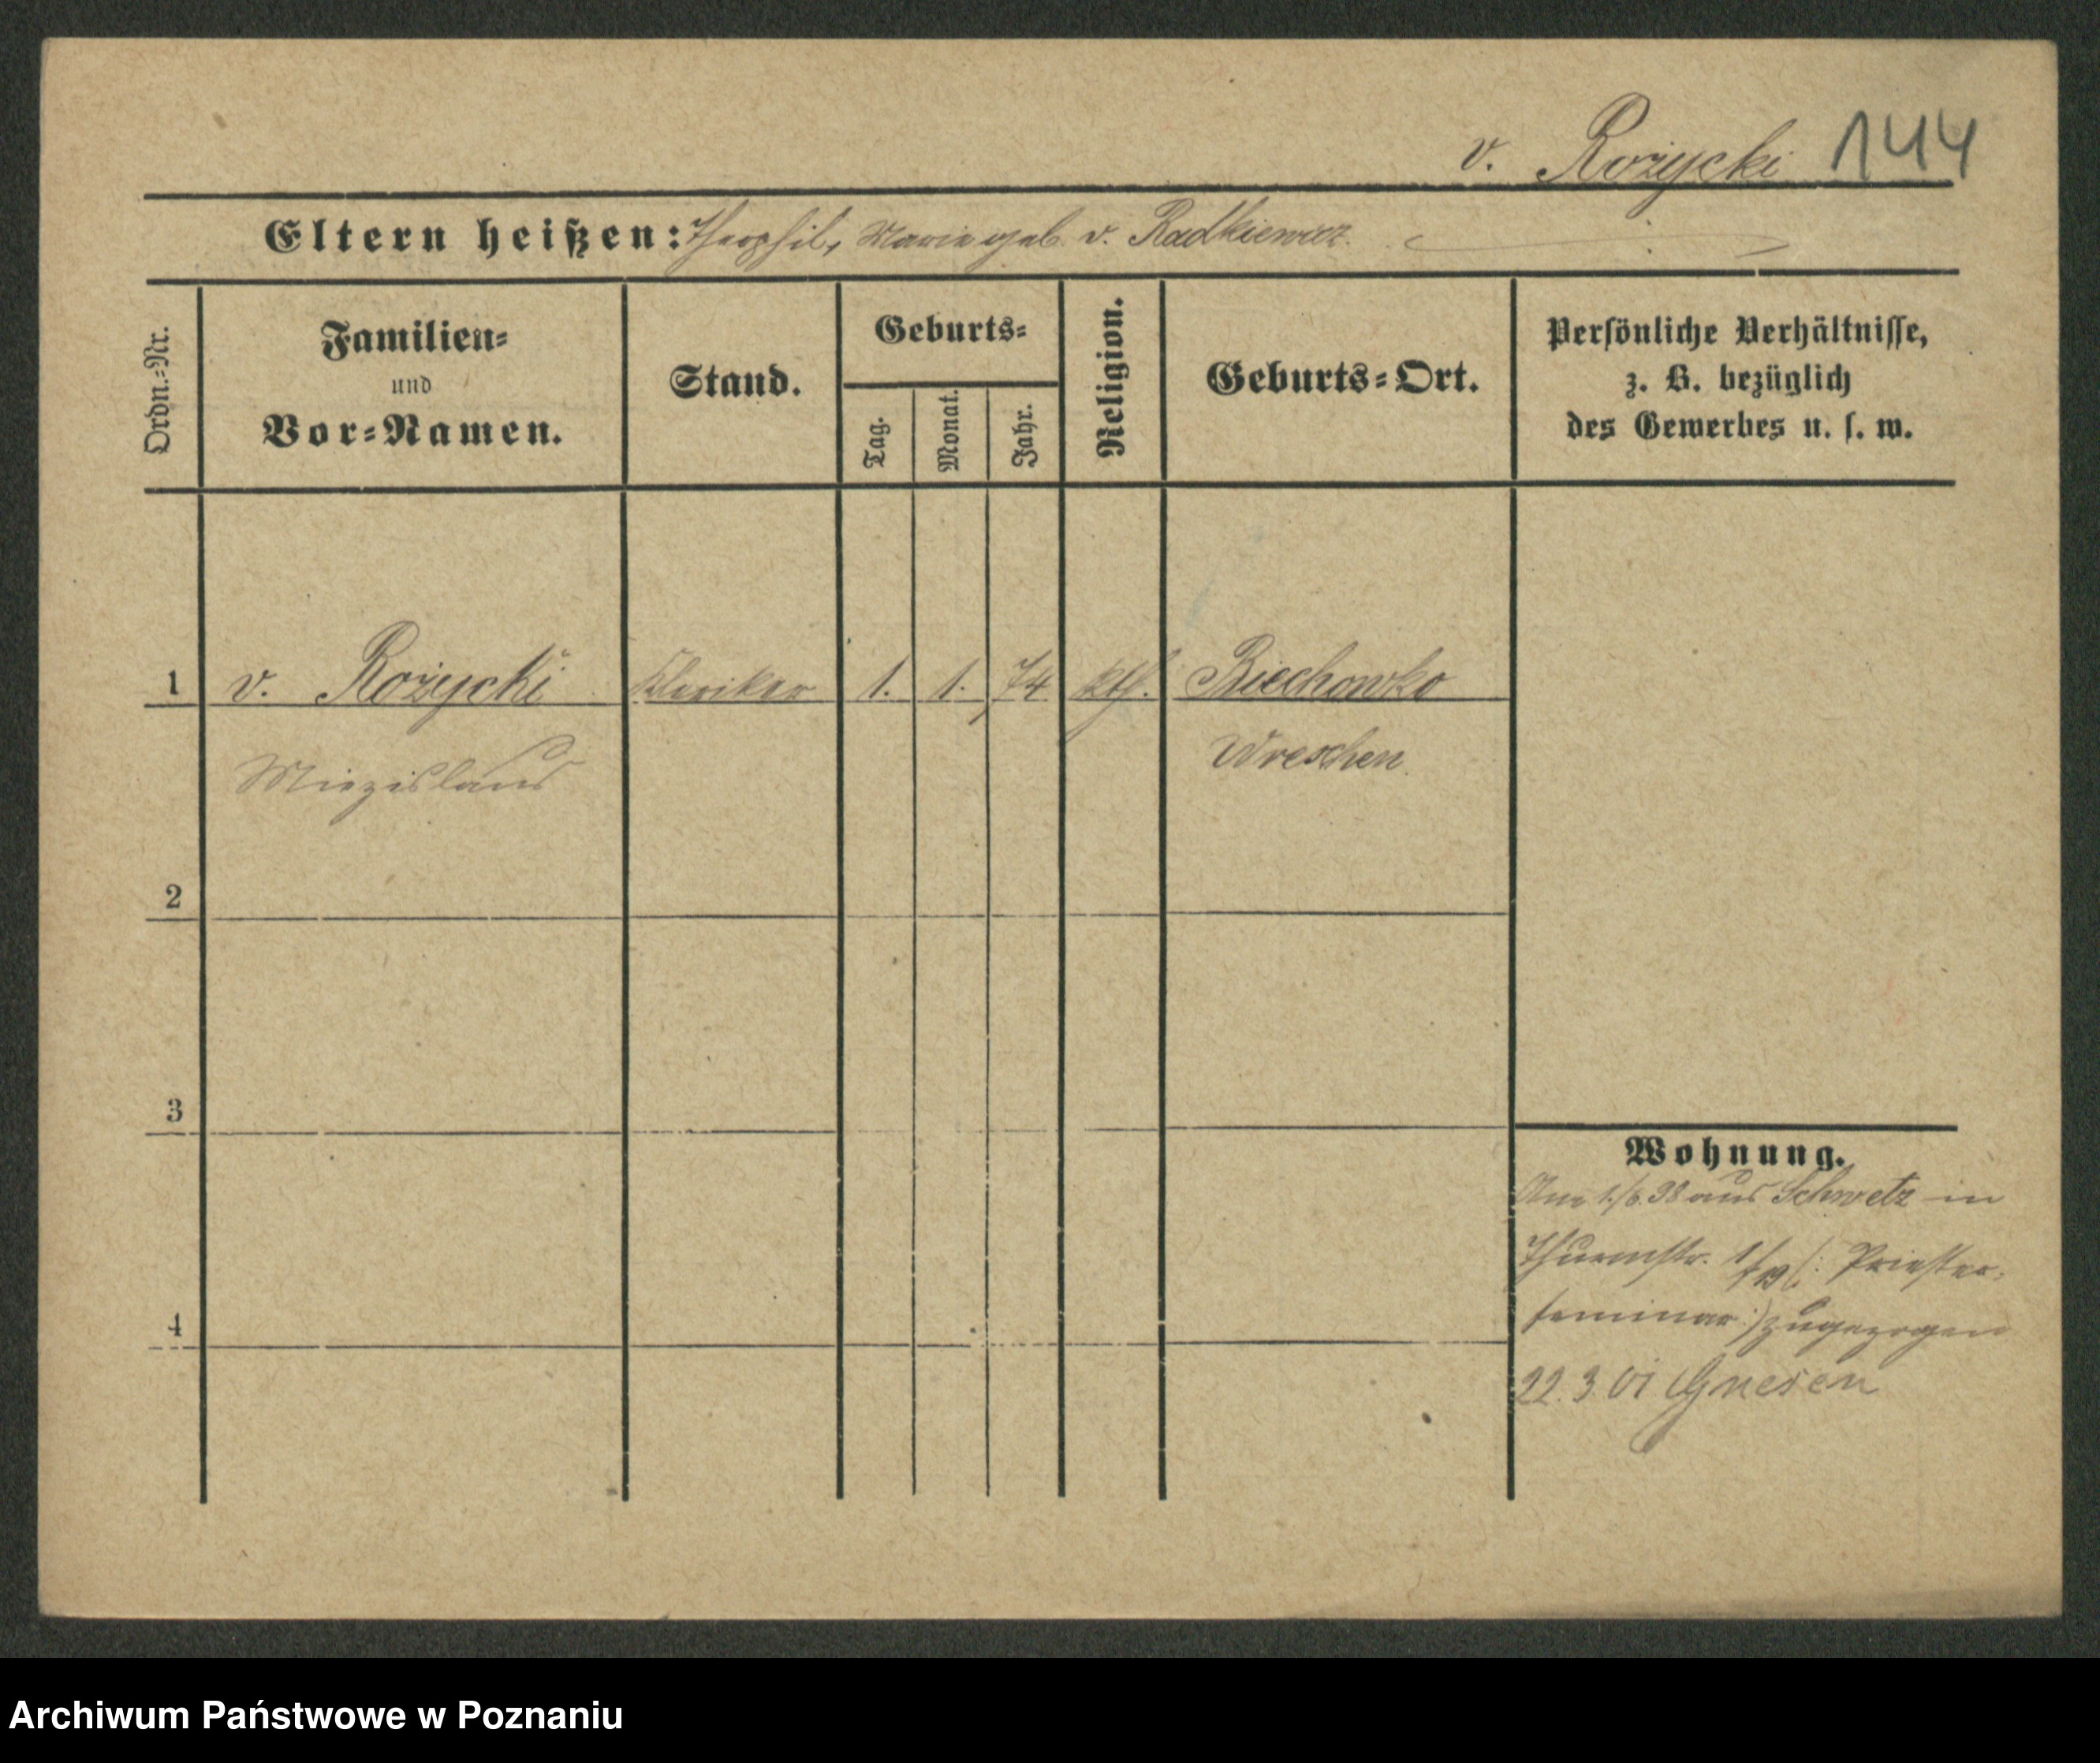 v. Rożycki 144
Eltern heißen: Theophil, Marie geb. v. Radkiewicz.
Ordn.-Nr.
Familien-
und
Vor-Namen.
Stand.
Geburts-
Tag.
Monat.
Jahr.
Religion.
Geburts-Ort.
Persönliche Verhältnisse,
z. B. bezüglich
des Gewerbes u. s. w.
1 v. Rożycki Kleriker 1. 1. 74 kth. Biechowko
Miezislaus Wreschen
2
3
4
Wohnung.
Am 1./6.98 aus Schwetz in
Thurmstr. (: Priester-
seminar :) zugezogen
22.3.01 Gnesen
Archiwum Państwowe w Poznaniu